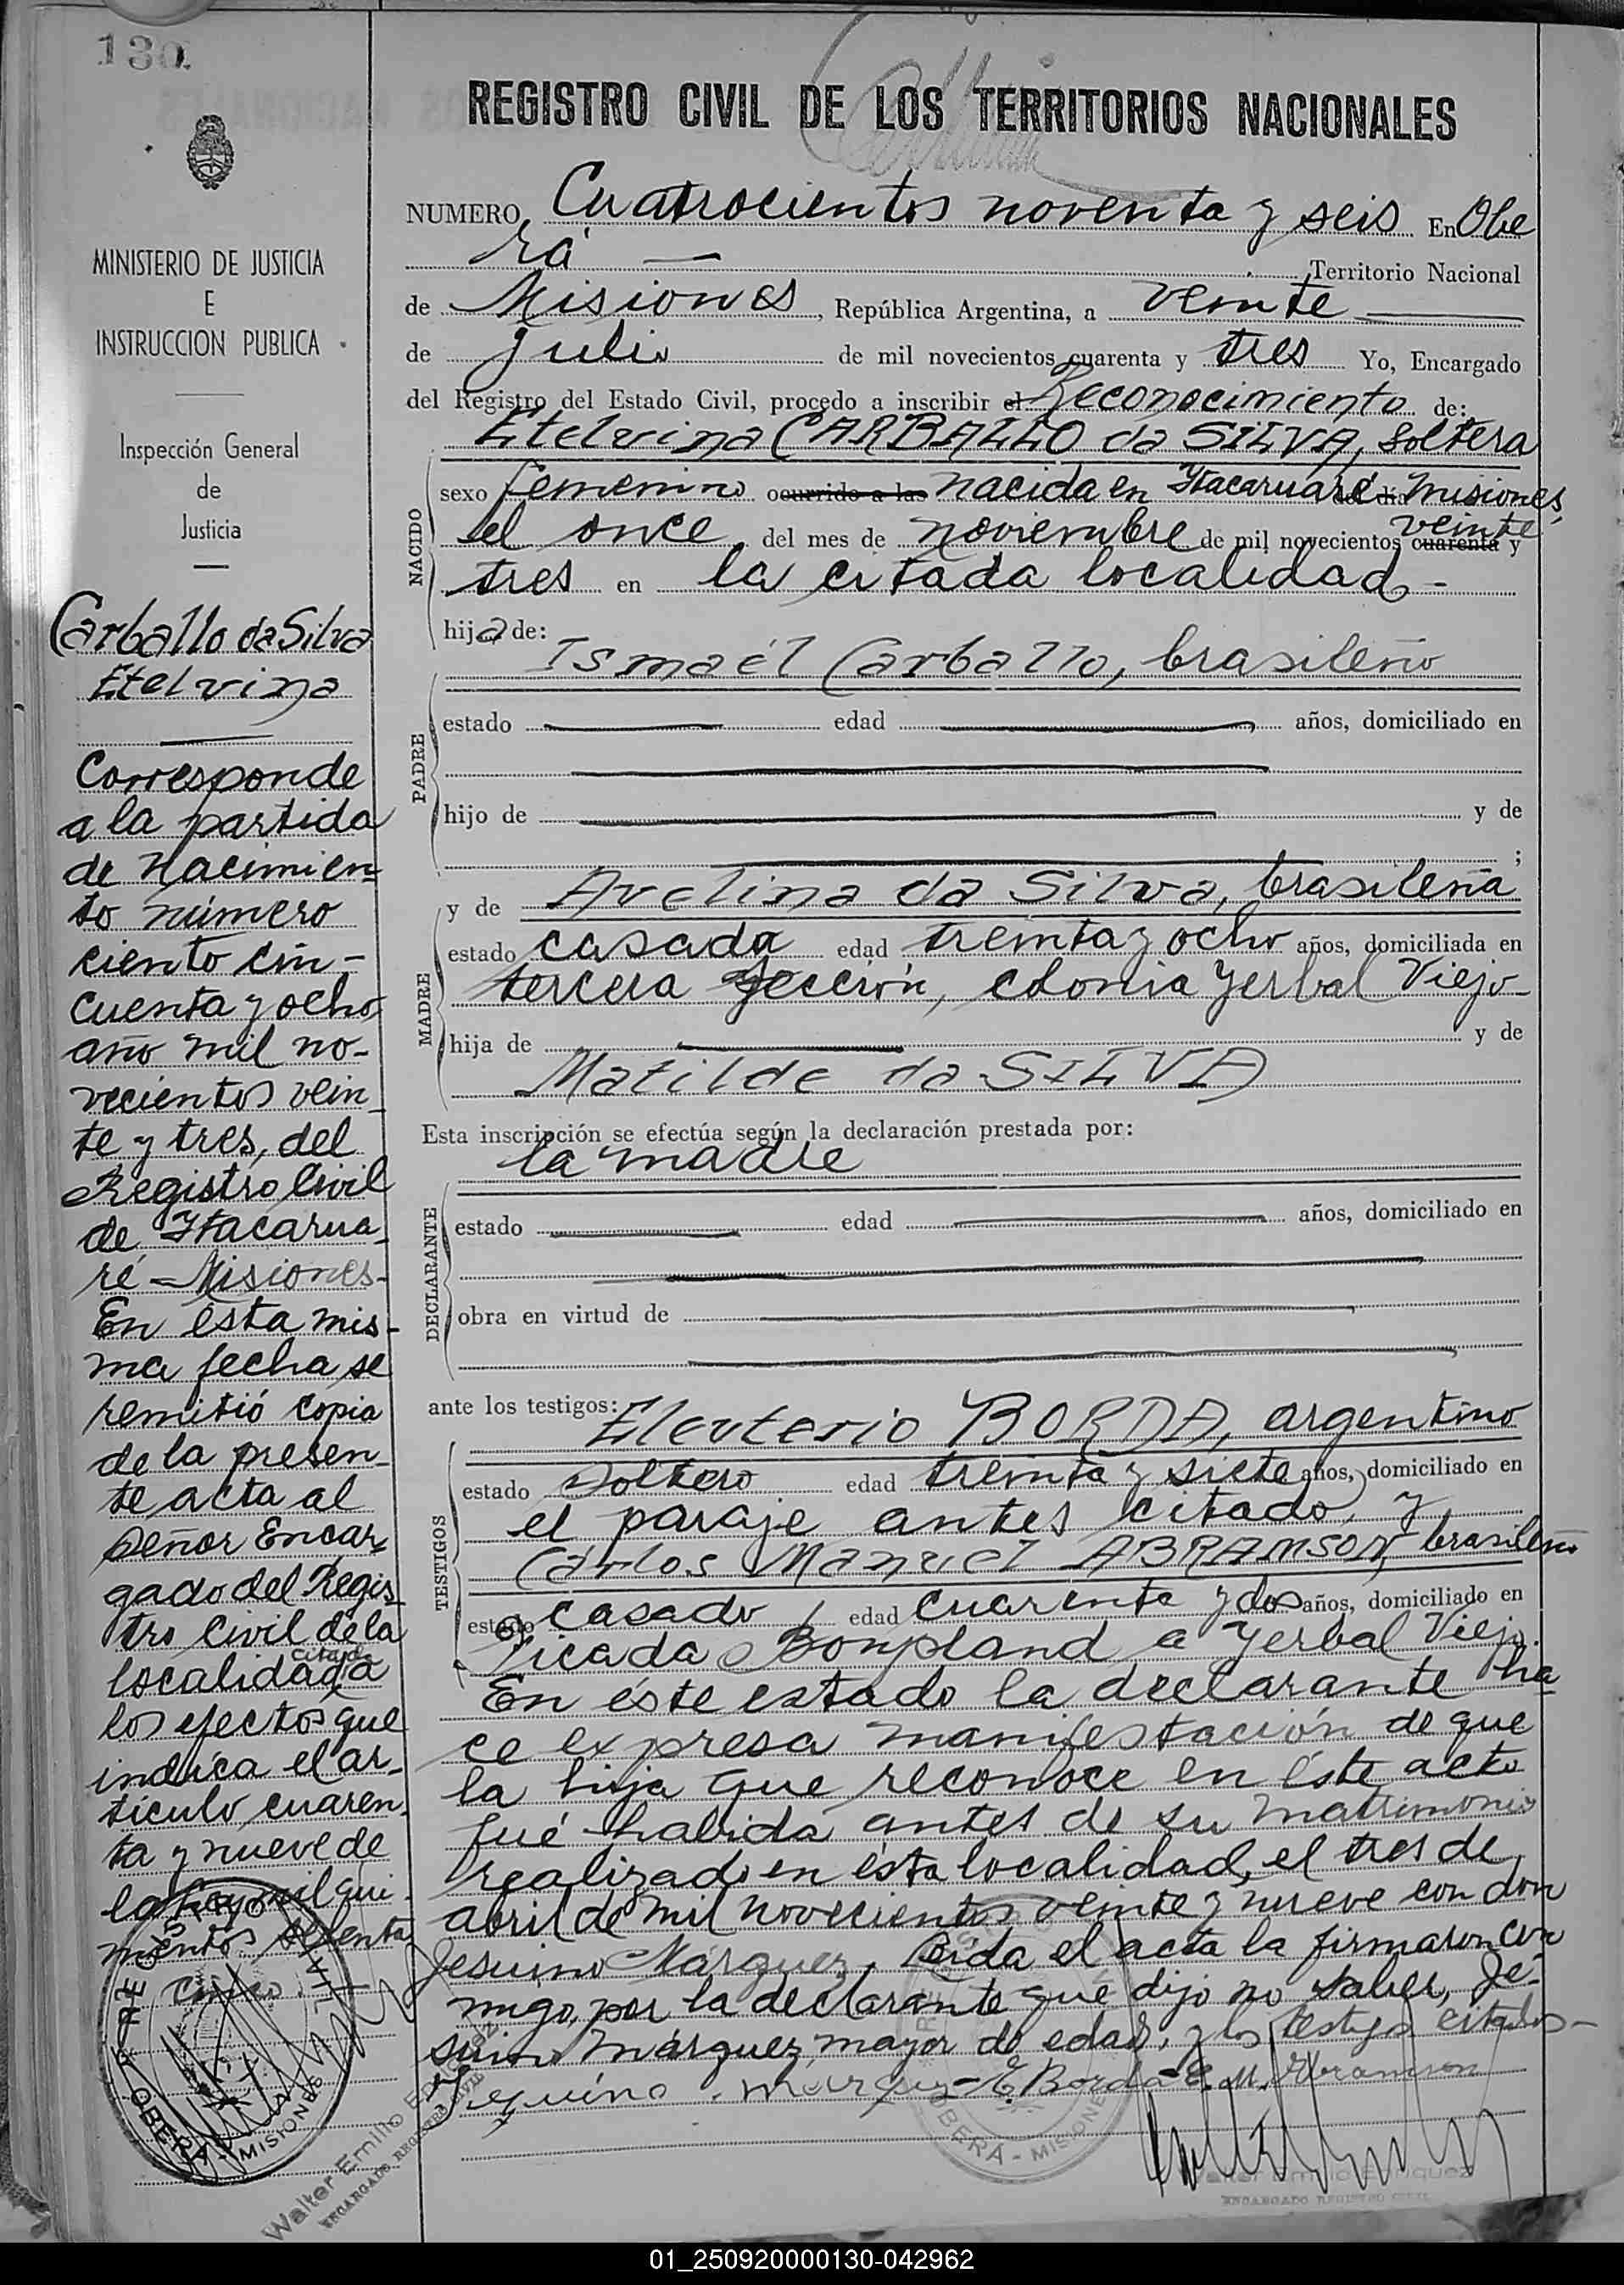 130.
REGISTRO CIVIL DE LOS TERRITORIOS NACIONALES
MINISTERIO DE JUSTICIA
E
INSTRUCCION PUBLICA
Inspección General
de
Justicia
Carballo da Silva
Etelvina
Corresponde
a la partida
de Nacimien-
to número
ciento cin-
cuenta y ocho,
año mil no-
vecientos vein-
te y tres, del
Registro Civil
de Itacarua-
ré - Misiones-
En ésta mis-
ma fecha se
remitió copia
de la presen-
te acta al
señor Encar-
gado del Regis-
tro Civil de la
citada
localidad a
los efectos que
indíca el ar-
tículo cuaren-
ta y nueve de
la Ley mil qui-
nientos setenta
cinco.
REGISTRO CIVIL
OBERÁ - MISIONES
Walter Emilio Enriquez
ENCARGADO REGISTRO CIVIL
NUMERO Cuatrocientos noventa y seis En Obe
rá Territorio Nacional
de Misiones, República Argentina, a veinte
de julio de mil novecientos cuarenta y tres Yo, Encargado
del Registro del Estado Civil, procedo a inscribir el Reconocimiento de:
Etelvina CARBALLO da SILVA, soltera
NACIDO
sexo femenino ocurrido a las nacida en Itacaruaré del día Misiones,
veinte
el once, del mes de noviembre de mil novecientos cuarenta y
tres en la citada localidad -
hija de:
Ismaél Carballo, brasileño
PADRE
estado edad años, domiciliado en
hijo de y de
;
y de Avelina da Silva, brasileña
MADRE
estado casada edad treinta y ocho años, domiciliada en
tercera Sección, colonia Yerbal Viejo-
hija de y de
Matilde da SILVA
Esta inscripción se efectúa según la declaración prestada por:
la madre
DECLARANTE
estado edad años, domiciliado en
obra en virtud de
ante los testigos:
Eleuterio BORDA, argentino
TESTIGOS
estado soltero edad treinta y siete años, domiciliado en
el paraje antes citado, y
Carlos Manuel ABRAMSON, brasileño
estado casado, edad cuarenta y dos años, domiciliado en
Picada Bonpland a Yerbal Viejo.
En éste estado la declarante ha-
ce expresa manifestación de que
la hija que reconoce en éste acto
fué habida antes de su matrimonio
realizado en ésta localidad, el tres de
abril de mil novecientos veinte y nueve con don
Jesuino Márquez. Leída el acta la firmaron con
migo, por la declarante que dijo no saber, Je-
suino Márquez, mayor de edad, y los testigos citados-
marquez - E Borda C. M. Abramson
OBERÁ - MISIONES
Walter Emilio Enriquez
ENCARGADO REGISTRO CIVIL
01_250920000130-042962